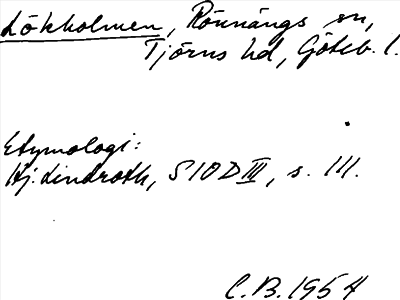 Lökholmen, Rönnängs sn,
Tjörns hd, Göteb. l.
Etymologi:
Hj. Lindroth, SIOD III, s. 111.
C.B. 1954